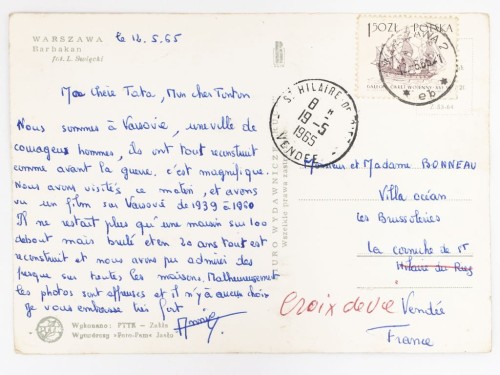 WARSZAWA
Barbakan
fot. L. Święcki
le 12.5.65
Ma Chère Tata, Mon cher Tonton
Nous sommes à Varsovie, une ville de
courageux hommes, ils ont tout reconstruit
comme avant la guerre. c'est magnifique.
Nous avons visités ce matin, et avons
vu un film sur Varsovie de 1939 à 1960
Il ne restait plus qu'une maison sur 100
debout mais brulé et en 20 ans tout est
reconstruit et nous avons pu admirer des
fresque sur toutes les maisons. Malheureusement
les photos sont affreuses et il n'y a aucun choix
je vous embrasse très fort
Annie
Wykonano: PTTK - Zakła
Wytwórczy «Foto-Pam» Jasło
BIURO WYDAWNICZ
Wszelkie prawa zas
1,50 ZŁ POLSKA
WA 2
eb
ST HILAIRE DE
8 H
19-5
1965
VENDEE
Monsieur et Madame BONNEAU
Villa océan
les Brussoleries
La corniche de St
Hilaire du Riez
Croix de Vie Vendée
France